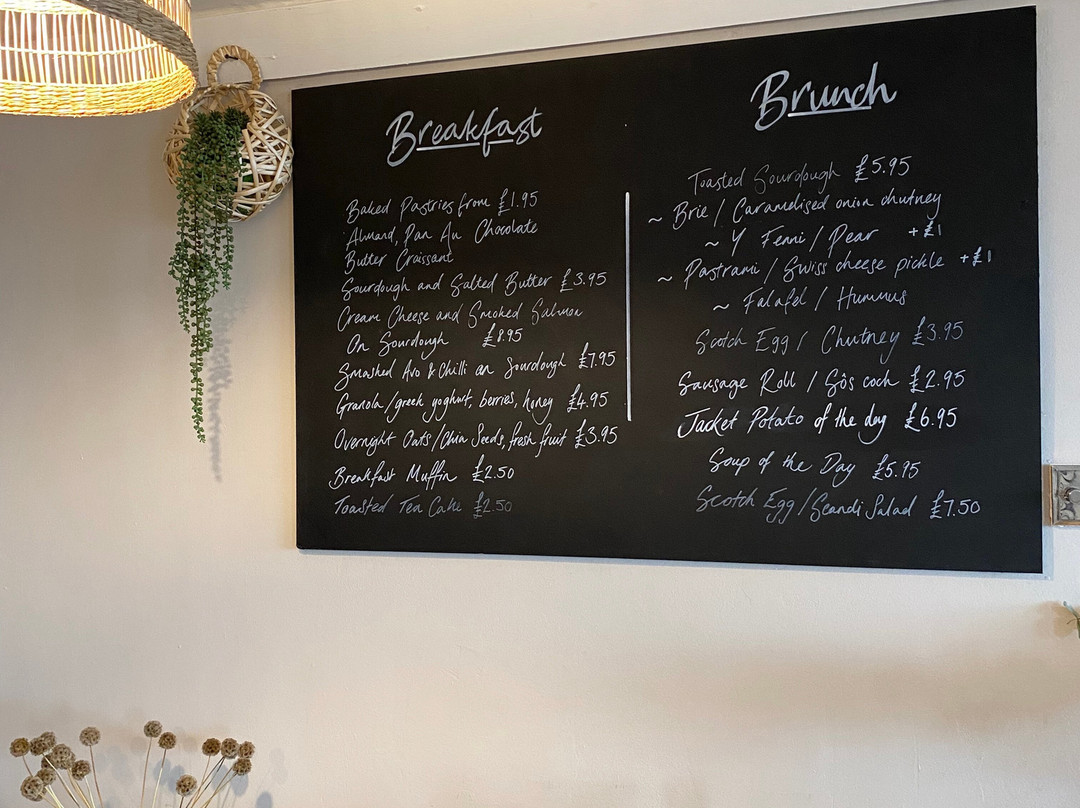 Breakfast
Baked Pastries from £1.95
Almond, Pan Au Chocolate
Butter Croissant
Sourdough and Salted Butter £3.95
Cream Cheese and Smoked Salmon
On Sourdough £8.95
Smashed Avo & Chilli on Sourdough £7.95
Granola/greek yoghurt, berries, honey £4.95
Overnight Oats/Chia Seeds, fresh fruit £3.95
Breakfast Muffin £2.50
Toasted Tea Cake £2.50
Brunch
Toasted Sourdough £5.95
~ Brie / Caramelised onion chutney
~ Y Fenni / Pear +£1
~ Pastrami / Swiss cheese pickle +£1
~ Falafel / Hummus
Scotch Egg / Chutney £3.95
Sausage Roll / Sôs coch £2.95
Jacket Potato of the day £6.95
Soup of the Day £5.95
Scotch Egg / Scandi Salad £7.50